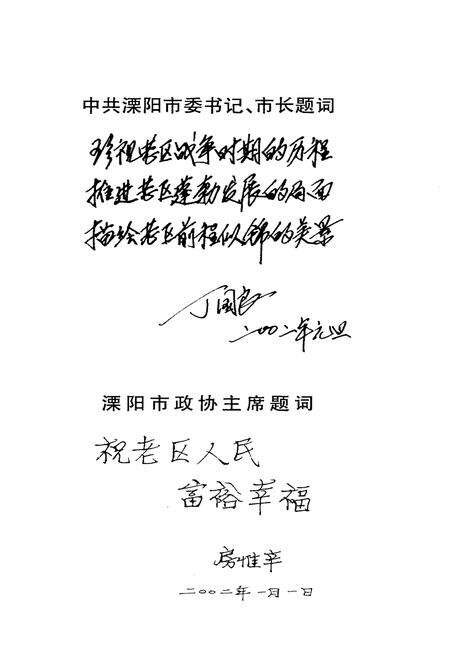 中共溧阳市委书记、市长题词
珍视老区战争时期的历程
推进老区蓬勃发展的局面
描绘老区前程似锦的美景
丁国良
二〇〇二年元旦
溧阳市政协主席题词
祝老区人民
富裕幸福
房惟辛
二〇〇二年一月一日